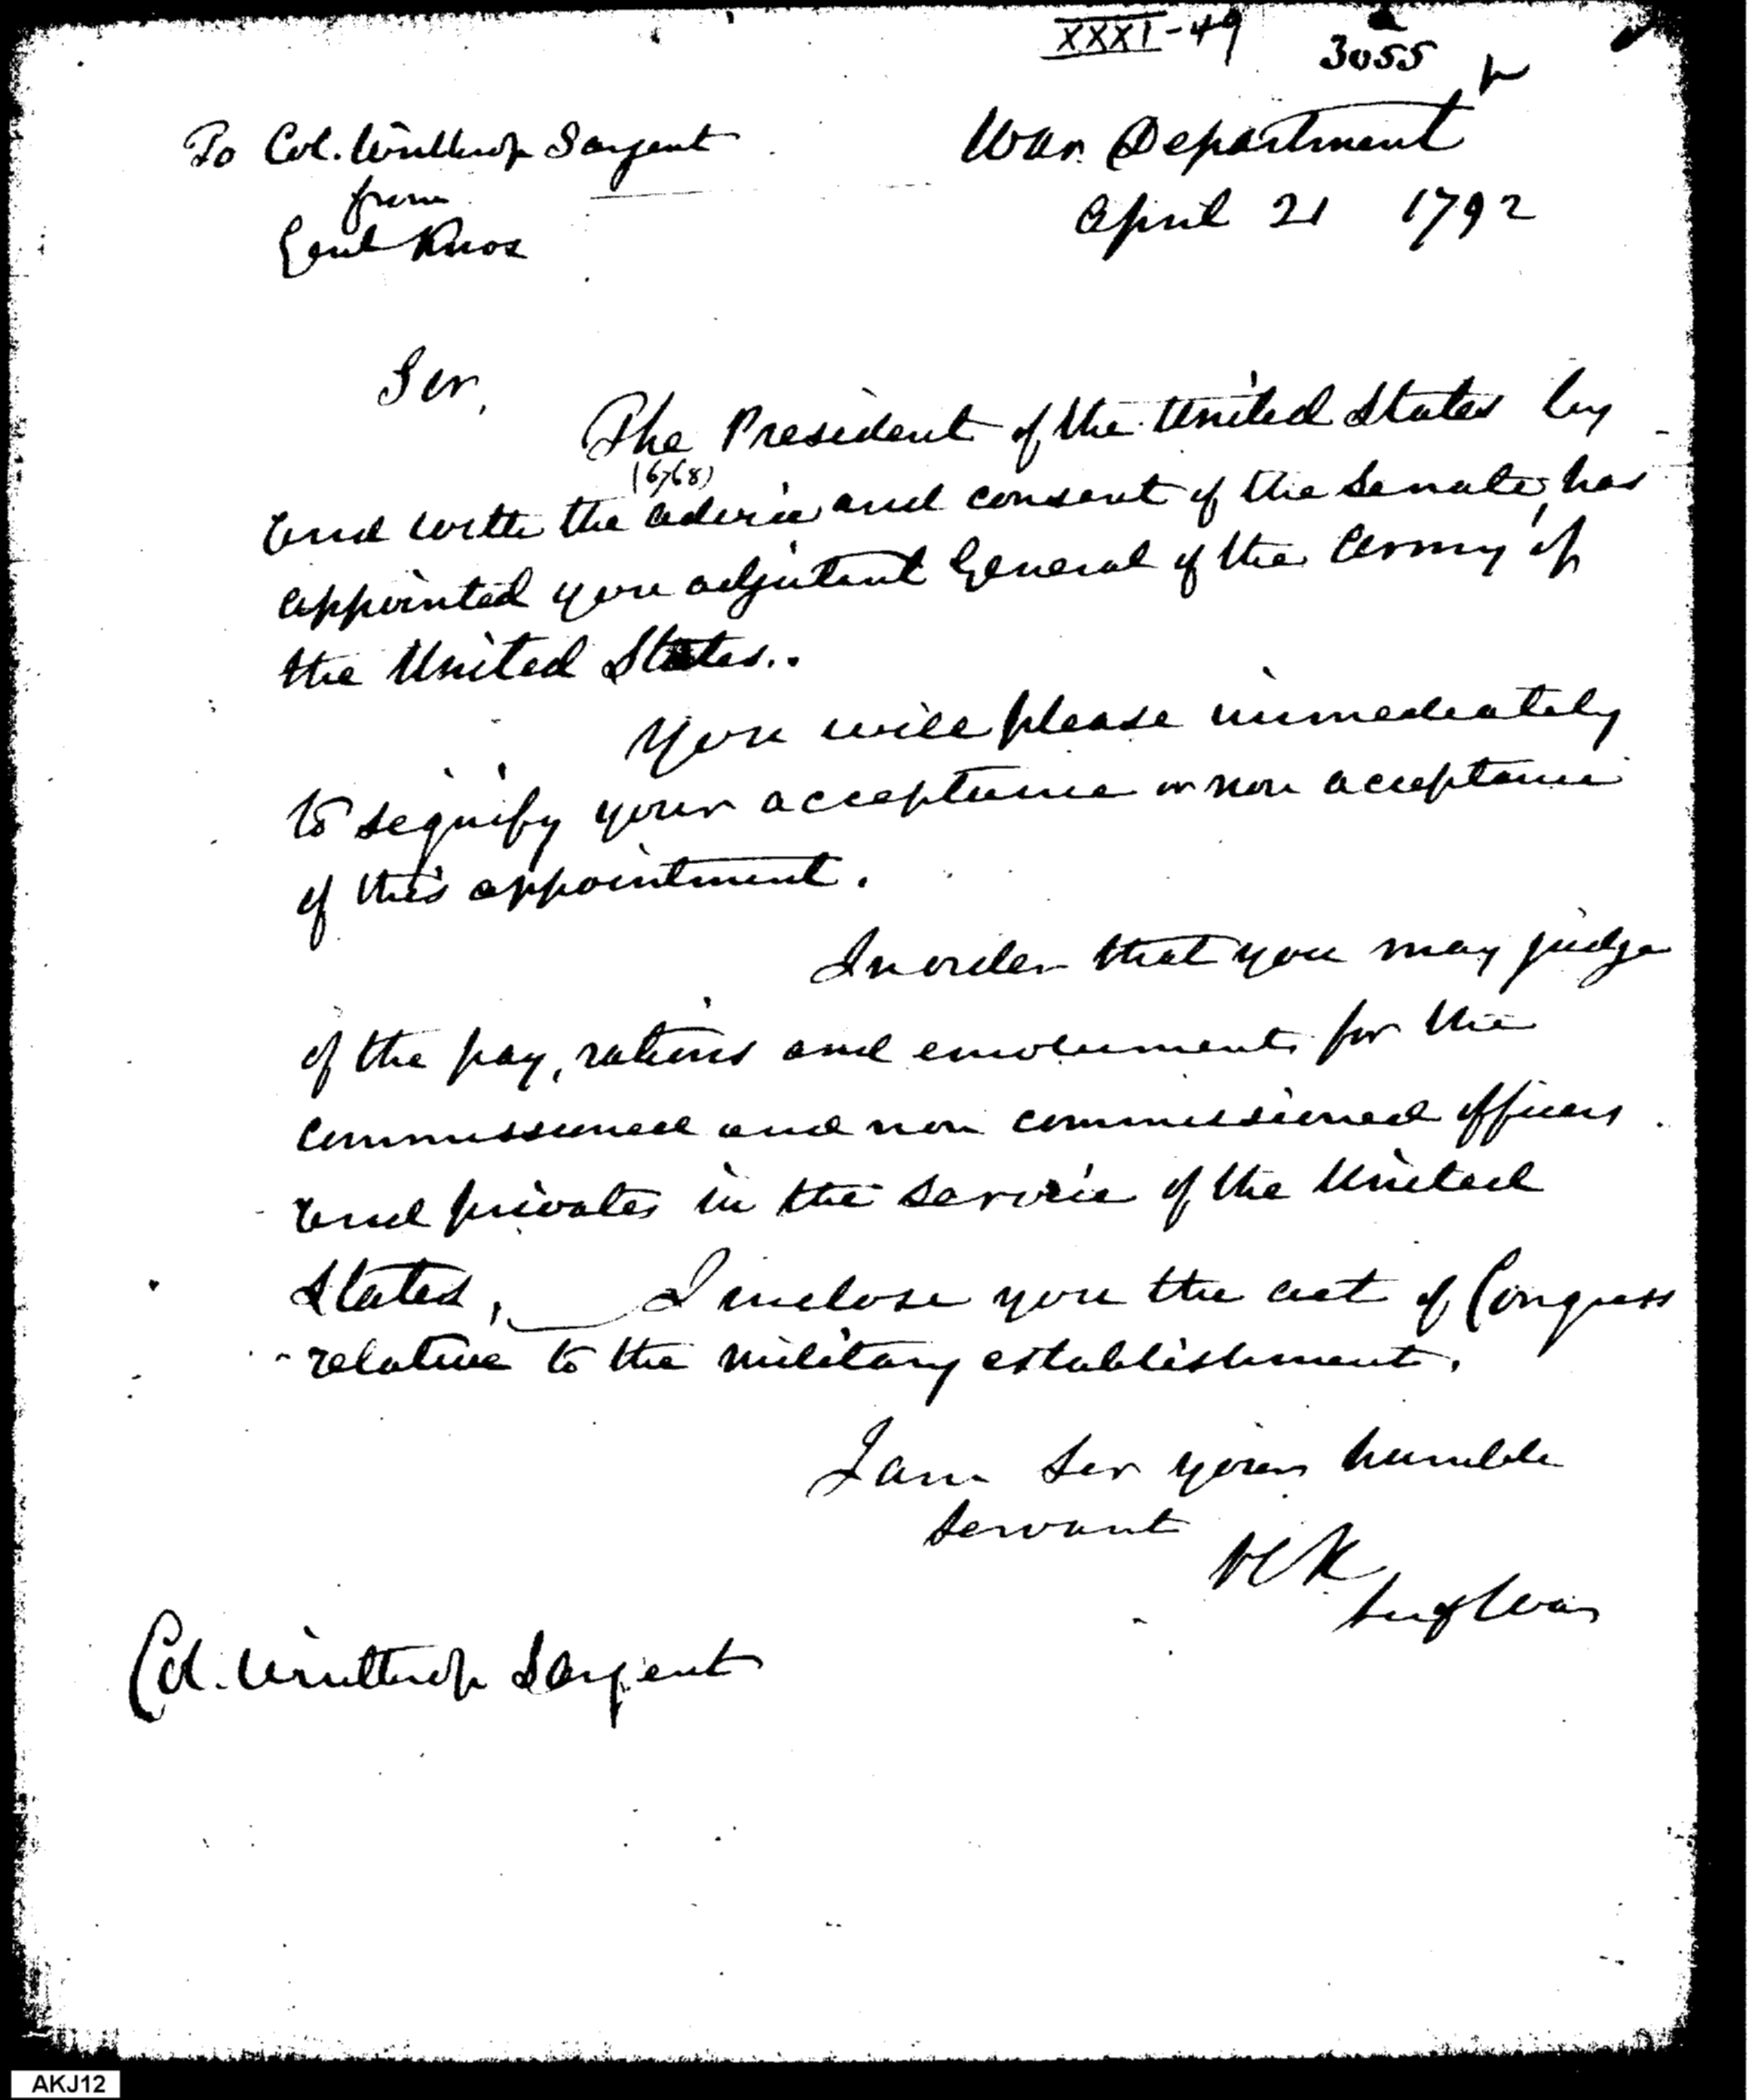 XXXI-49
3055
To Col. Winthrop Sargent
from
Genl Knox
War Department
April 21 1792
Sir,
The President of the United States by
(6768)
and with the advice and consent of the Senate, has
appointed you adjutant General of the Army of
the United States..
You will please immediately
to signify your acceptance or non acceptance
of this appointment.
In order that you may judge
of the pay, rations and emoluments for the
commissioned and non commissioned officers
and privates in the service of the United
States, I inclose you the act of Congress
relative to the military establishment.
I am Sir your humble
servant
HK
Sec of War
Col. Winthrop Sargent
AKJ12